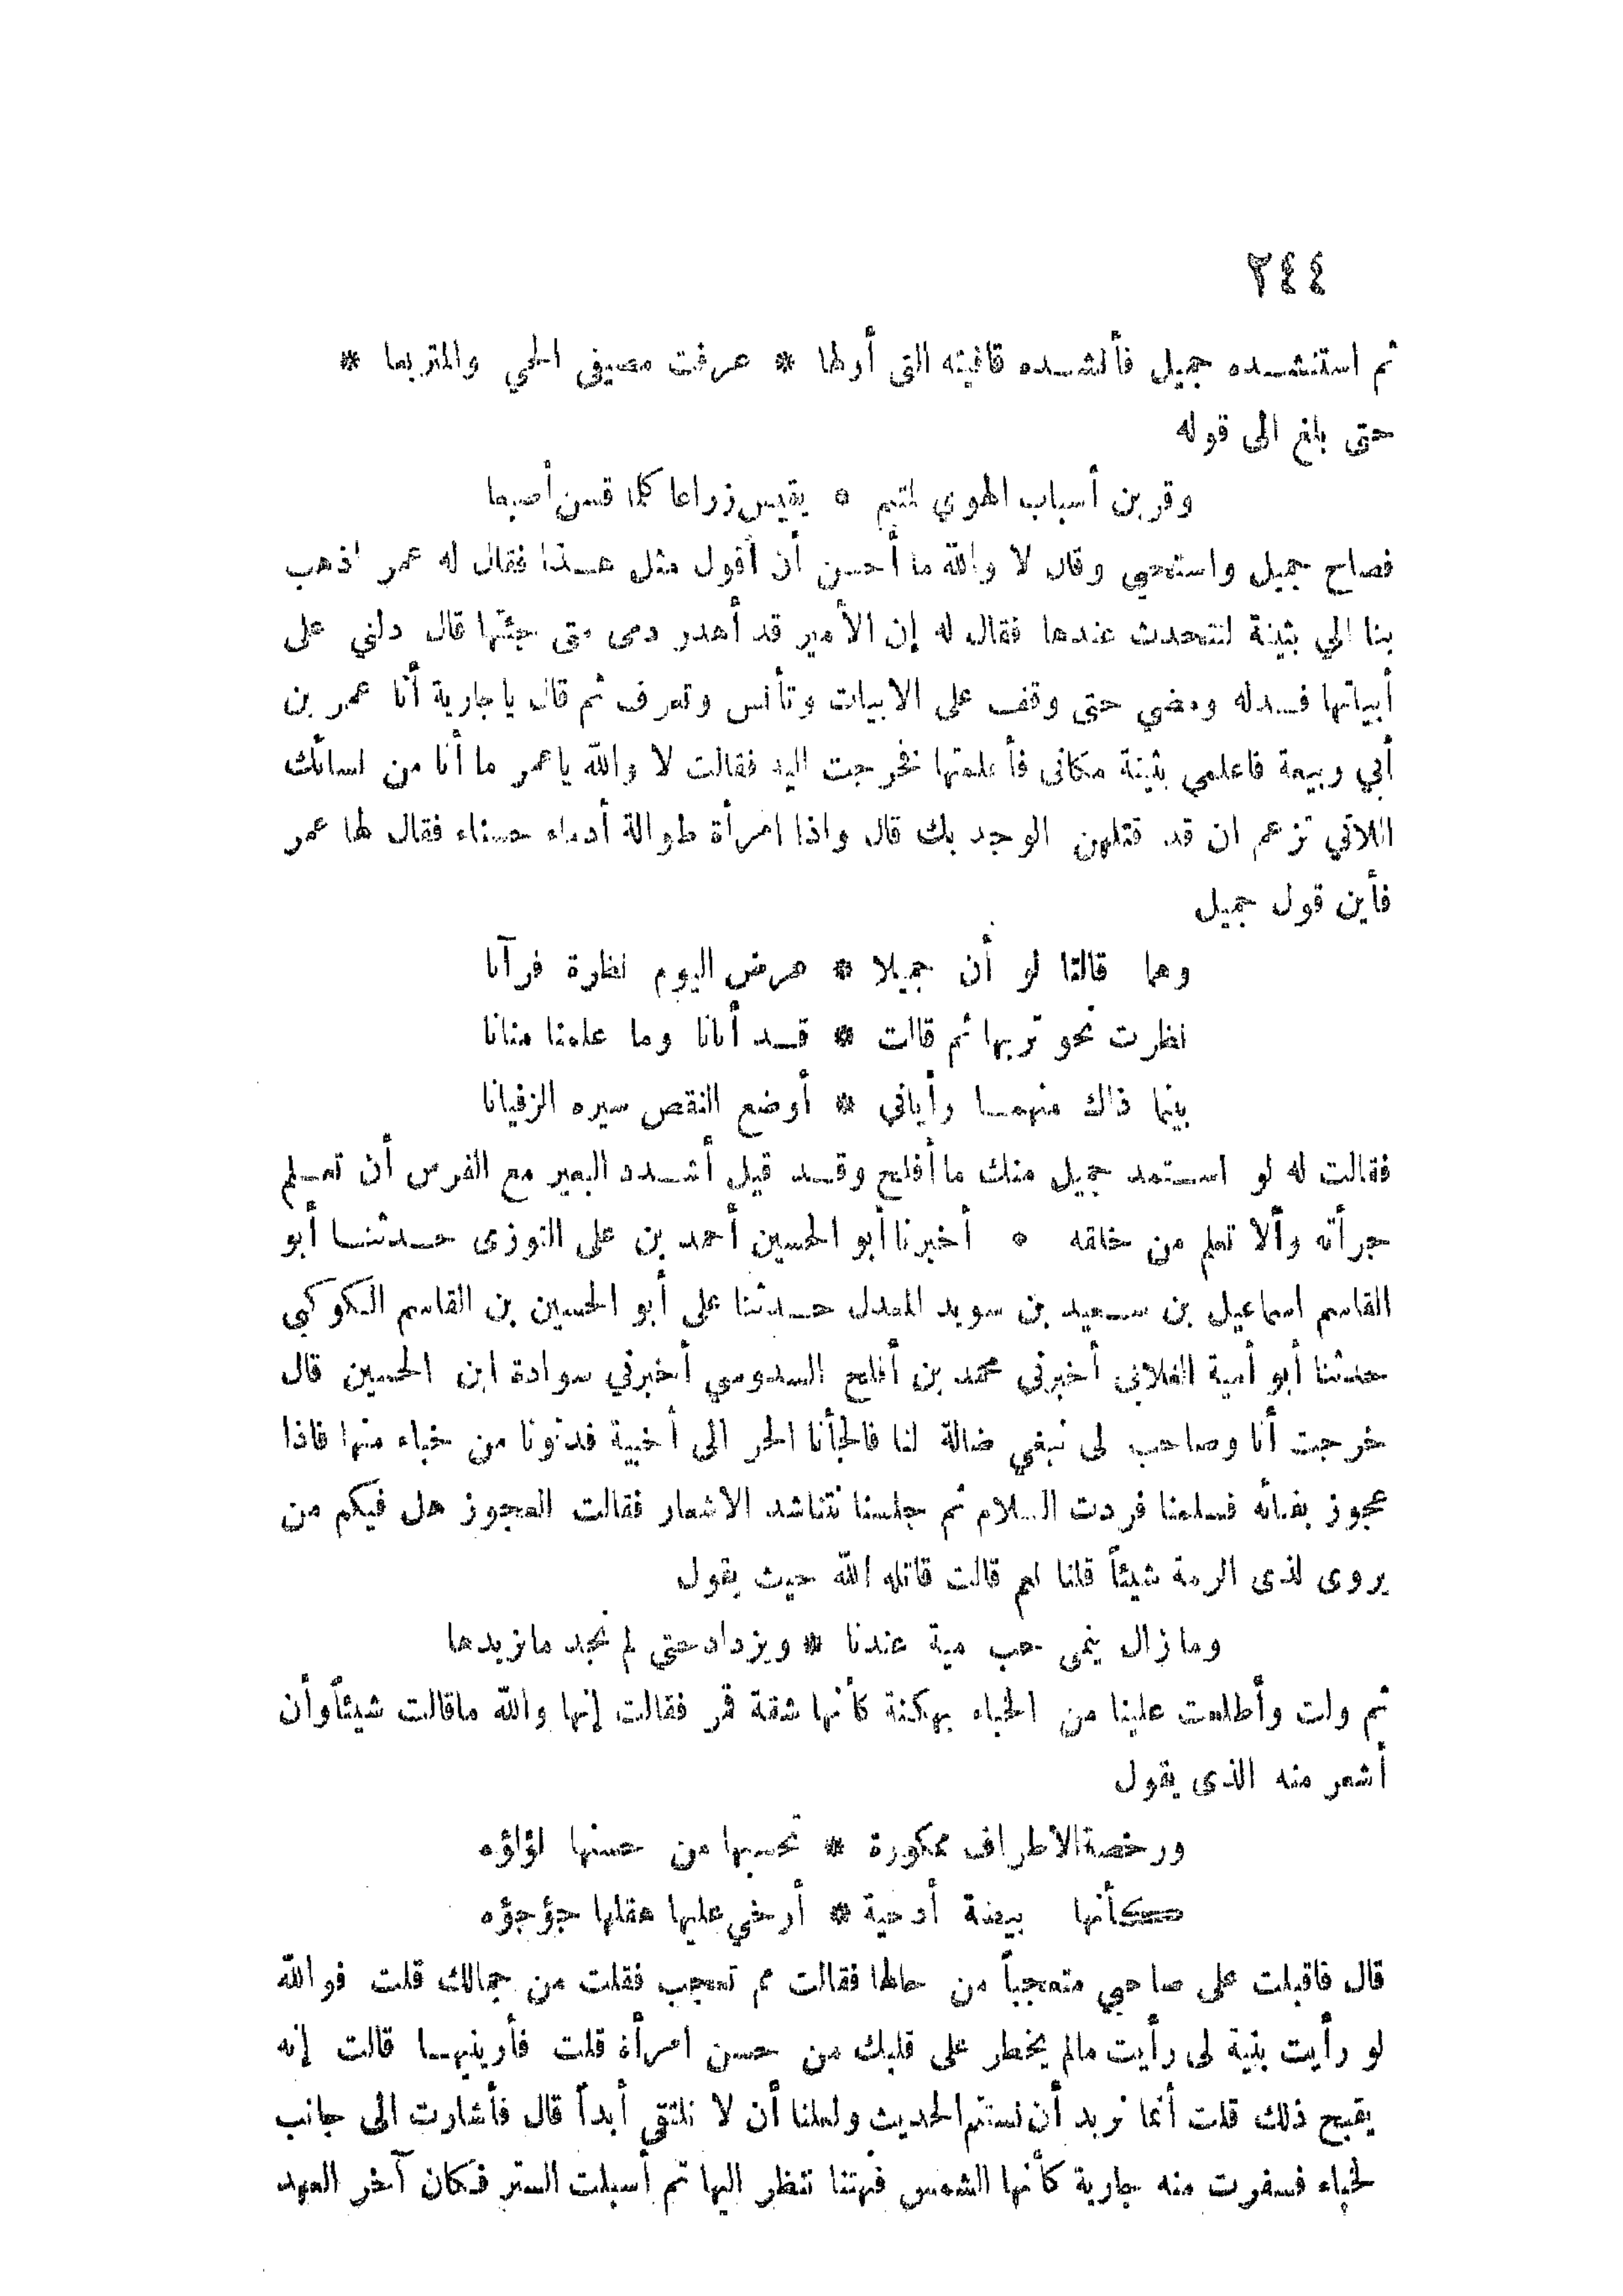 ٢٤٤
ثم استنشده جميل فأنشده قافيته التى أولها * عرفت مصيف الحي والمتربعا *
حتى بلغ الى قوله
وقربن أسباب الهوي لمتيم * يقيس ذراعا كلما قسن أصبعا
فصاح جميل واستحيي وقال لا والله ما أحسن أن أقول مثل هذا فقال له عمر اذهب
بنا الي بثينة لنتحدث عندها فقال له إن الأمير قد أهدر دمى متى جئتها قال دلني على
أبياتها فدله ومضي حتى وقف على الابيات وتأنس وتعرف ثم قال ياجارية أنا عمر بن
أبي ربيعة فاعلمي بثينة مكانى فأعلمتها فخرجت اليه فقالت لا والله ياعمر ما أنا من نسائك
اللاتي تزعم ان قد قتلهن الوجد بك قال واذا امرأة طوالة أدماء حسناء فقال لها عمر
فأين قول جميل
وهما قالتا لو أن جميلا * عرض اليوم نظرة فرآنا
نظرت نحو تربها ثم قالت * قد أتانا وما علمنا منانا
بينما ذاك منهما رأياني * أوضع النقص سيره الزفيانا
فقالت له لو استمد جميل منك ما أفلح وقد قيل أشدد البعير مع الفرس أن تعلم
جرأته وألا تعلم من خلقه * أخبرنا أبو الحسين أحمد بن على التوزى حدثنا أبو
القاسم اسماعيل بن سعيد بن سويد المعدل حدثنا على أبو الحسين بن القاسم الكوكبي
حدثنا أبو أمية الغلابي أخبرني محمد بن أفلح السدوسي أخبرني سوادة ابن الحسين قال
خرجت أنا وصاحب لى نبغي ضالة لنا فالجأنا الحر الى أخبية فدنونا من خباء منها فاذا
عجوز بفنائه فسلمنا فردت السلام ثم جلسنا نتناشد الاشعار فقالت العجوز هل فيكم من
يروى لذى الرمة شيئاً قلنا نعم قالت قاتله الله حيث يقول
وما زال ينمى حب مية عندنا * ويزداد حتي لم نجد ما نزيدها
ثم ولت وأطلعت علينا من الخباء بهكنة كأنها شقة قمر فقالت إنها والله ماقالت شيئاً وأن
أشعر منه الذى يقول
ورخصة الاطراف ممكورة * تحسبها من حسنها لؤلؤه
كأنها بيضة أدحية * أرخي عليها هقلها جؤجؤه
قال فاقبلت على صاحبي متعجباً من جمالها فقالت مم تعجب فقلت من جمالك قلت فوالله
لو رأيت بنية لى رأيت مالم يخطر على قلبك من حسن امرأة قلت فأرينيها قالت إنه
يقبح ذلك قلت أنما نريد أن نستتم الحديث ولعلنا أن لا نلتقى أبداً قال فأشارت الى جانب
لخباء فسفرت منه جارية كأنها الشمس فبهتنا ننظر اليها ثم أسبلت الستر فكان آخر العهد